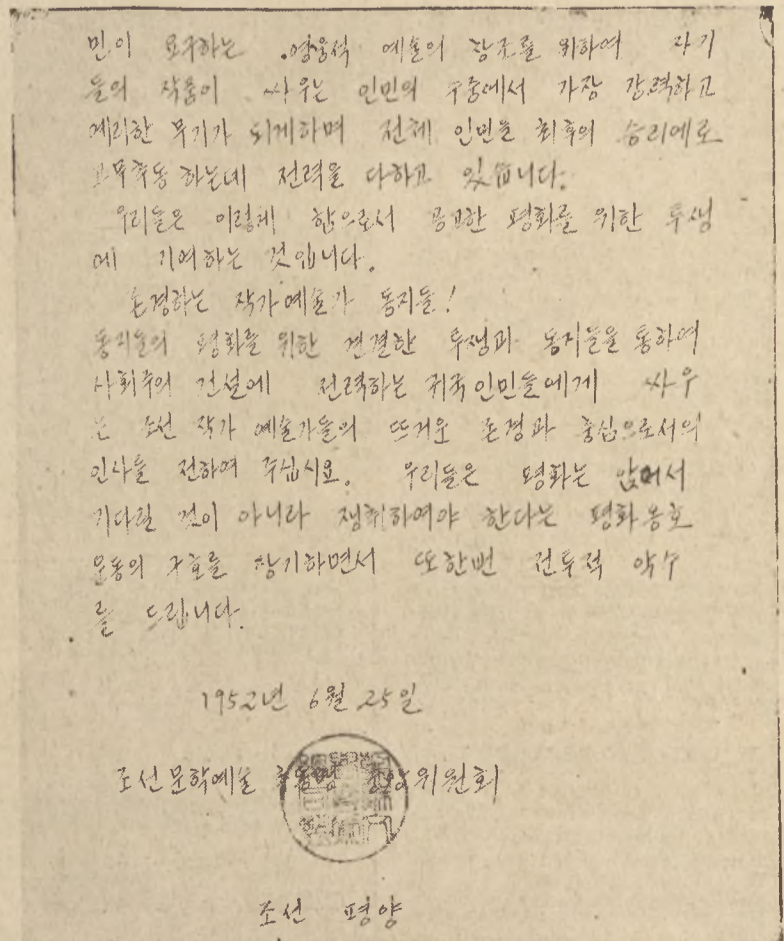 민이 요구하는 영웅적 예술의 창조를 위하여 자기
들의 작품이 싸우는 인민의 수중에서 가장 강력하고
예리한 무기가 되게하며 전체 인민을 최후의 승리에로
고무추동하는데 전력을 다하고 있읍니다.
우리들은 이렇게 함으로서 공고한 평화를 위한 투쟁
에 기여하는 것입니다.
존경하는 작가예술가 동지들!
동지들의 평화를 위한 견결한 투쟁과 동지들을 통하여
사회주의 건설에 전력하는 귀국인민들에게 싸우
는 조선 작가 예술가들의 뜨거운 존경과 충심으로서의
인사를 전하여 주십시요. 우리들은 평화는 앉어서
기다릴 것이 아니라 쟁취하여야 한다는 평화옹호
운동의 구호를 상기하면서 또한번 전투적 악수
를 드립니다.
1952년 6월 25일
조선문학예술 총동맹 중앙위원회
조선 평양